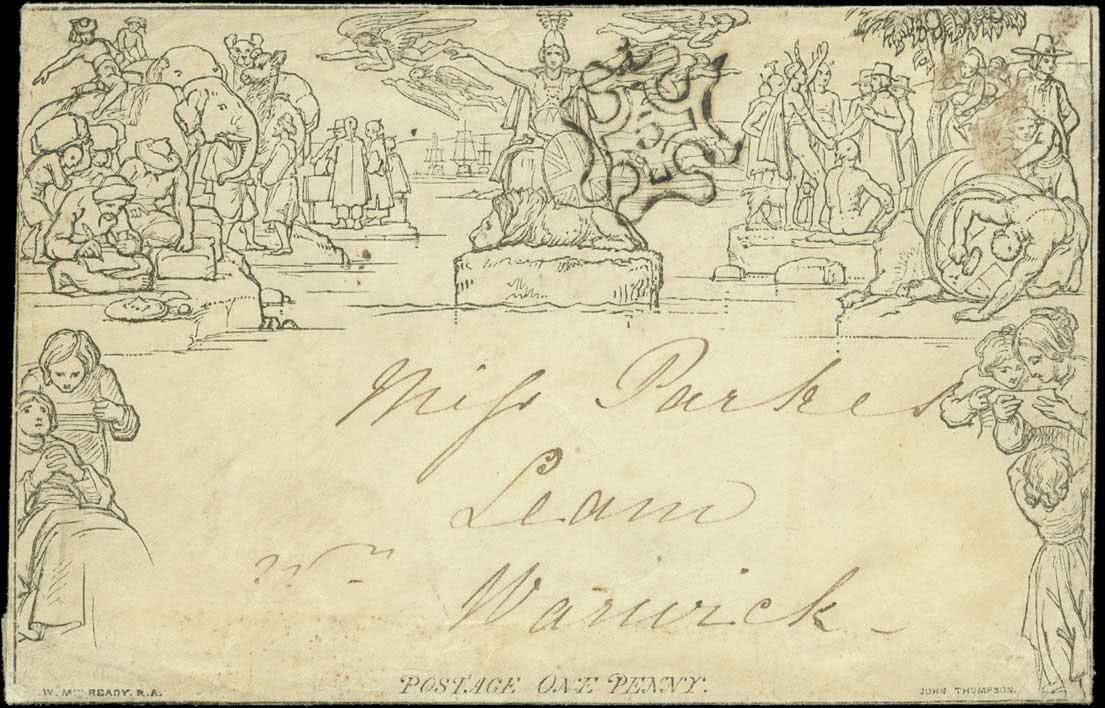 Miss Parkes
Leam
Warwick
POSTAGE ONE PENNY.
W. MULREADY. R.A.
JOHN THOMPSON.